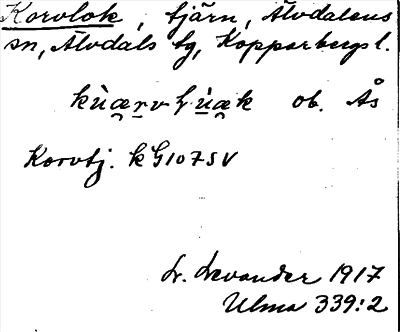 Korvlok, tjärn, Älvdalens
sn, Älvdals tg, Kopparbergs l.
ob. Ås
Korvtj. k G107SV
L. Levander 1917
Ulma 339:2